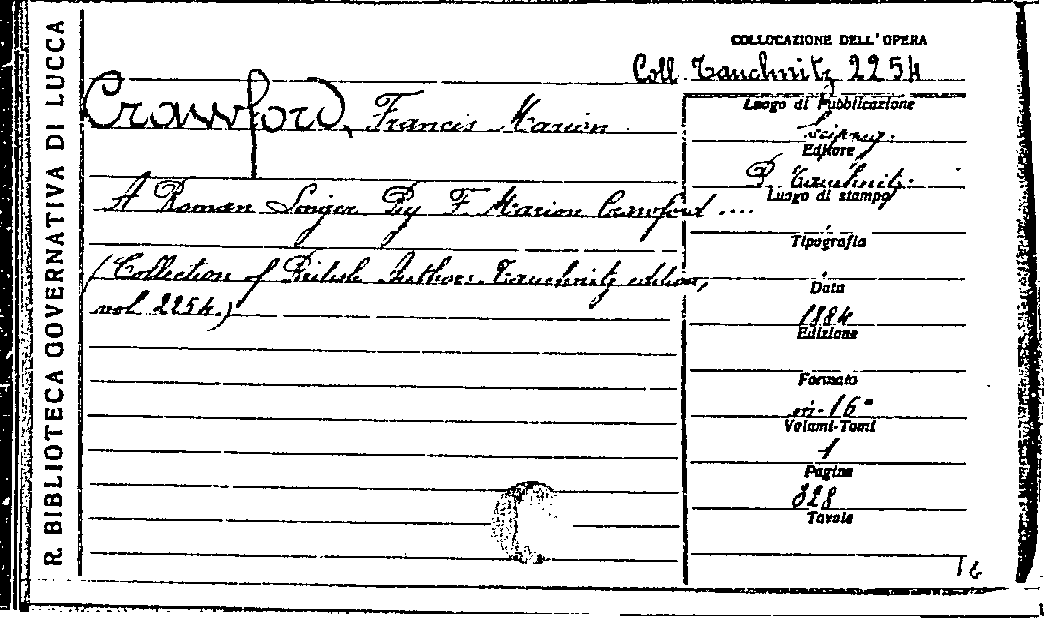 R. BIBLIOTECA GOVERNATIVA DI LUCCA
COLLOCAZIONE DELL'OPERA
Coll. Tauchnitz 2254
Crawford, Francis Marion
A Roman Singer By F. Marion Crawford ....
(Collection of British Authors Tauchnitz edition,
vol 2254.)
Luogo di Pubblicazione
Leipzig.
Editore
B. Tauchnitz.
Luogo di stampa
Tipografia
Data
1884
Edizione
Formato
in-16°
Volumi-Tomi
1
Pagine
328
Tavole